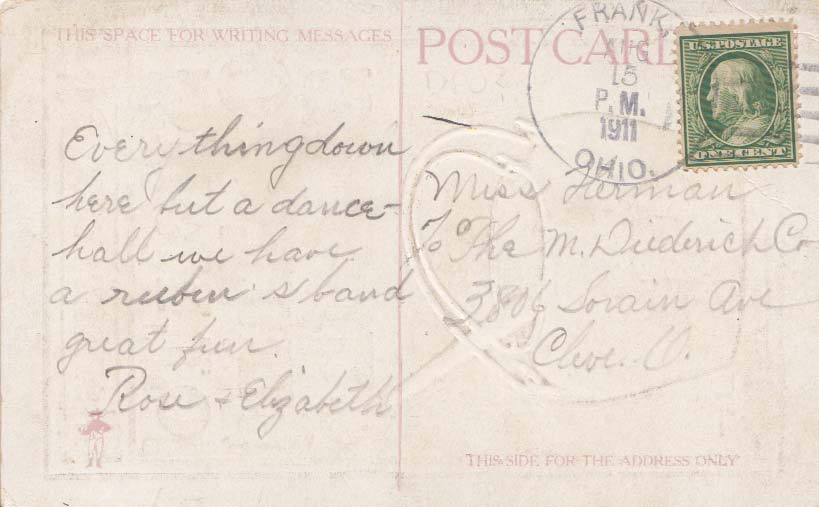 THIS SPACE FOR WRITING MESSAGES
Everything down
here but a dance-
hall we have
a reuben's band
great fun.
Rose & Elizabeth
POST CARD
FRANK
AUG
15
P.M.
1911
OHIO.
U.S. POSTAGE
ONE CENT
Miss Herman
℅ The M. Diederich Co
3806 Lorain Ave
Cleve. O.
THIS SIDE FOR THE ADDRESS ONLY